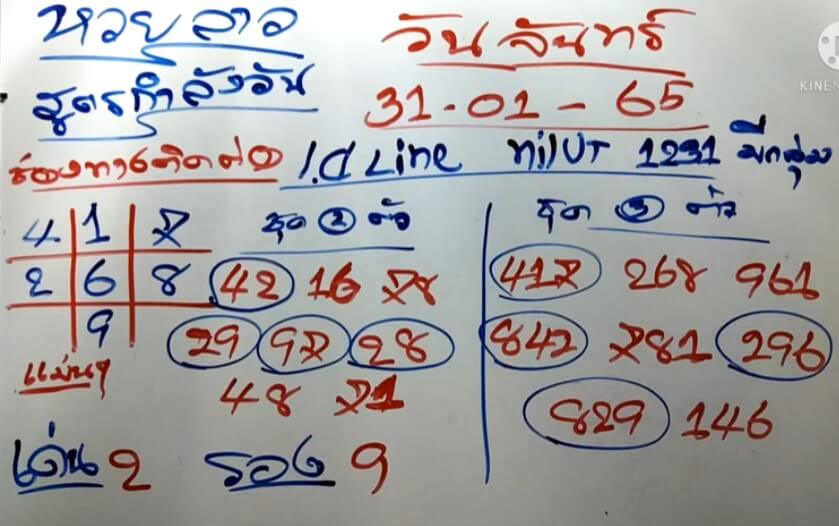 หวยลาว
วันจันทร์
สูตรกำลังวัน
31-01-65
KINE
ช่องทางติดต่อ I.d Line
1231 มีกลุ่ม
4 1 7
2 6 8
9
แม่นๆ
ชุด 2 ตัว
42 16 78
29 97 28
48 71
ชุด 3 ตัว
417 268 961
842 781 296
829 146
เด่น 2 รอง 9